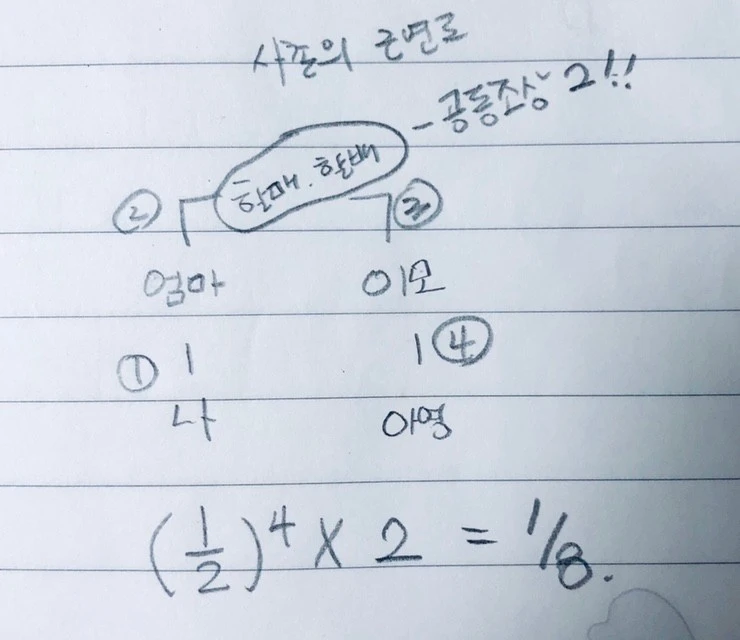 사촌의 근연도
- 공동조상 2!!
할매. 할배
② ③
엄마 이모
① | | ④
나 아영
(1/2)⁴ × 2 = 1/8.